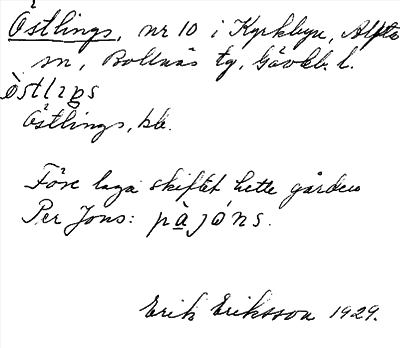 Östlings, nr 10 i Kyrkbyn, Alfta
sn, Bollnäs tg, Gävleb. l.
östlıŋs
Östlings, bb.
Före laga skiftet hette gården
Per Jons: pàjóns.
Erik Eriksson 1929.